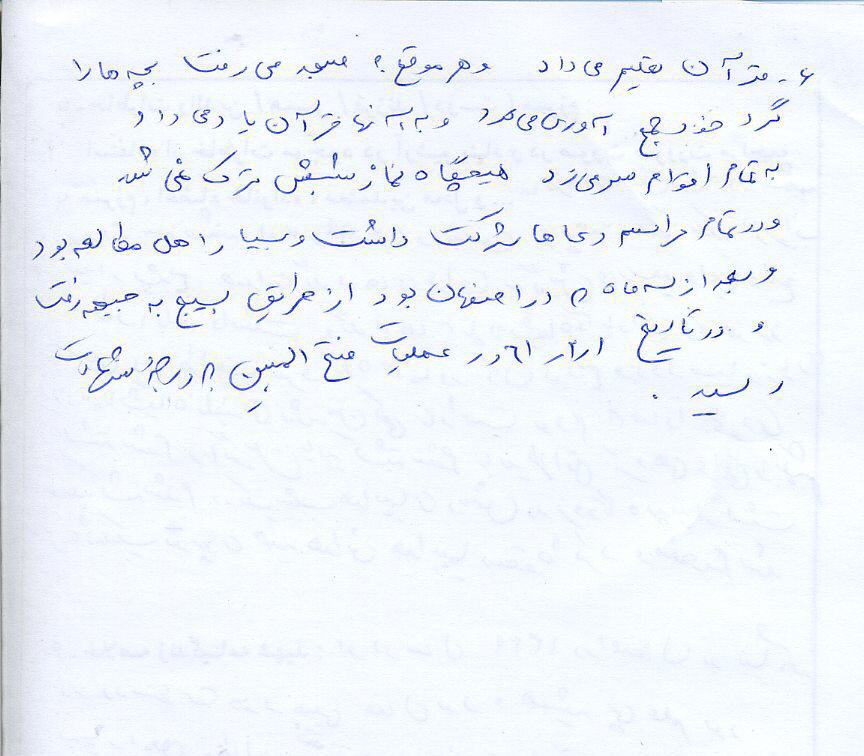 ۶- قرآن تعلیم می داد و هر موقع به مسجد می رفت بچه ها را
گرد خود جمع آوری می کرد و به آنها قرآن یاد می داد
به تمام اقوام سر می زد هیچگاه نماز شبش ترک نمی شد
و در تمام مراسم دعاها شرکت داشت و بسیار اهل مطالعه بود
و بعد از سه ماه که در اصفهان بود از طریق بسیج به جبهه رفت
و در تاریخ ۱/۱/۶۱ در عملیات فتح المبین به درجه شهادت
رسید .